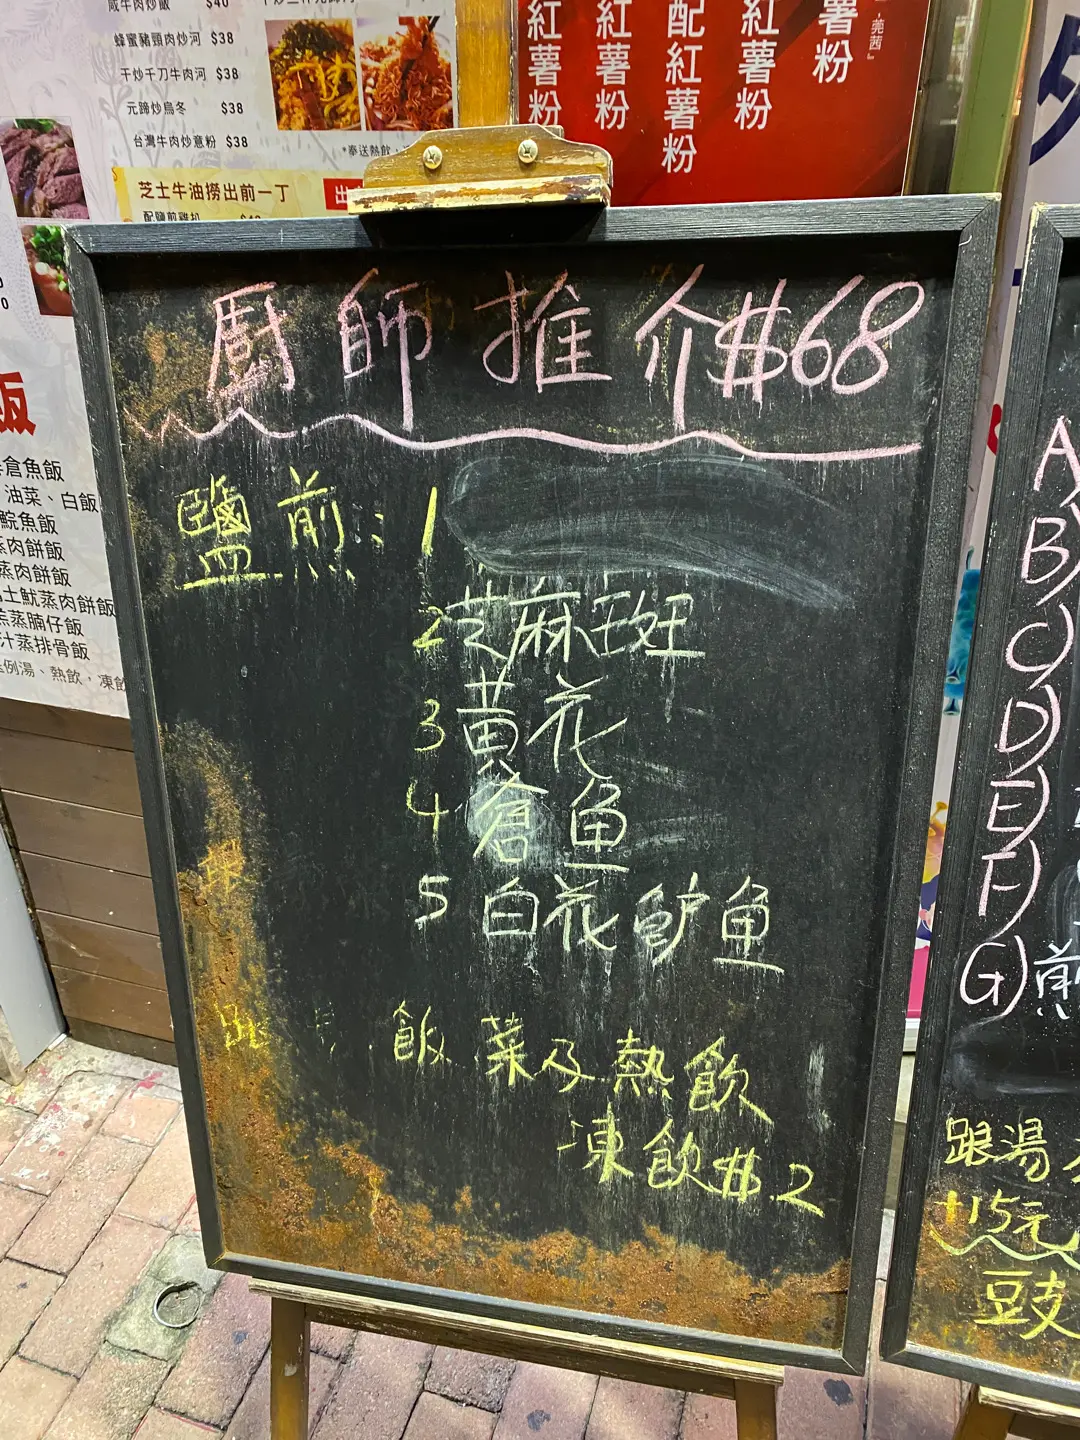 咸牛肉炒飯 $40
蜂蜜豬頸肉炒河 $38
干炒千刀牛肉河 $38
元蹄炒烏冬 $38
台灣牛肉炒意粉 $38
芝士牛油撈出前一丁
配鹽煎雞扒
*奉送熱飲
紅薯粉
紅薯粉
配紅薯粉
紅薯粉
薯粉
飯
倉魚飯
油菜、白飯
鯇魚飯
蒸肉餅飯
蒸肉餅飯
土魷蒸肉餅飯
蒸腩仔飯
汁蒸排骨飯
例湯、熱飲，凍飲
廚師推介$68
鹽煎：1
2 芝麻班
3 黄花
4 倉魚
5 白花鲈魚
飯 菜及熱飲
凍飲$.2
A
B)
C)
D)
E)
F)
G)煎
跟湯
+15元
豆支